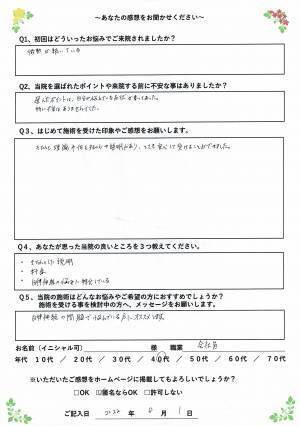 ～あなたの感想をお聞かせください～
Q1、初回はどういったお悩みでご来院されましたか？
微熱が続いている
Q2、当院を選ばれたポイントや来院する前に不安な事はありましたか？
選んだポイントは、自分が悩んでいる
特に不安はありませんでした。
Q3、はじめて施術を受けた印象やご感想をお願いします。
説明があり、とても安心して受けることができました。
Q４、あなたが思った当院の良いところを３つ教えてください。
・きちんとした説明
・料金
・自律神経の
Q５、当院の施術はどんなお悩みやご希望の方におすすめでしょうか？
施術を受ける事を検討中の方へ、メッセージをお願いします。
自律神経の問題で悩んでいる方にオススメです
お名前（イニシャル可） 様 職業 会社員
年代 １０代 ／ ２０代 ／ ３０代 ／ ４０代 ／ ５０代 ／ ６０代 ／ ７０代
※いただいたご感想をホームページに掲載してもよろしいでしょうか？
□OK ☑匿名ならOK □許可しない
ご記入日 2022 年 8 月 1 日